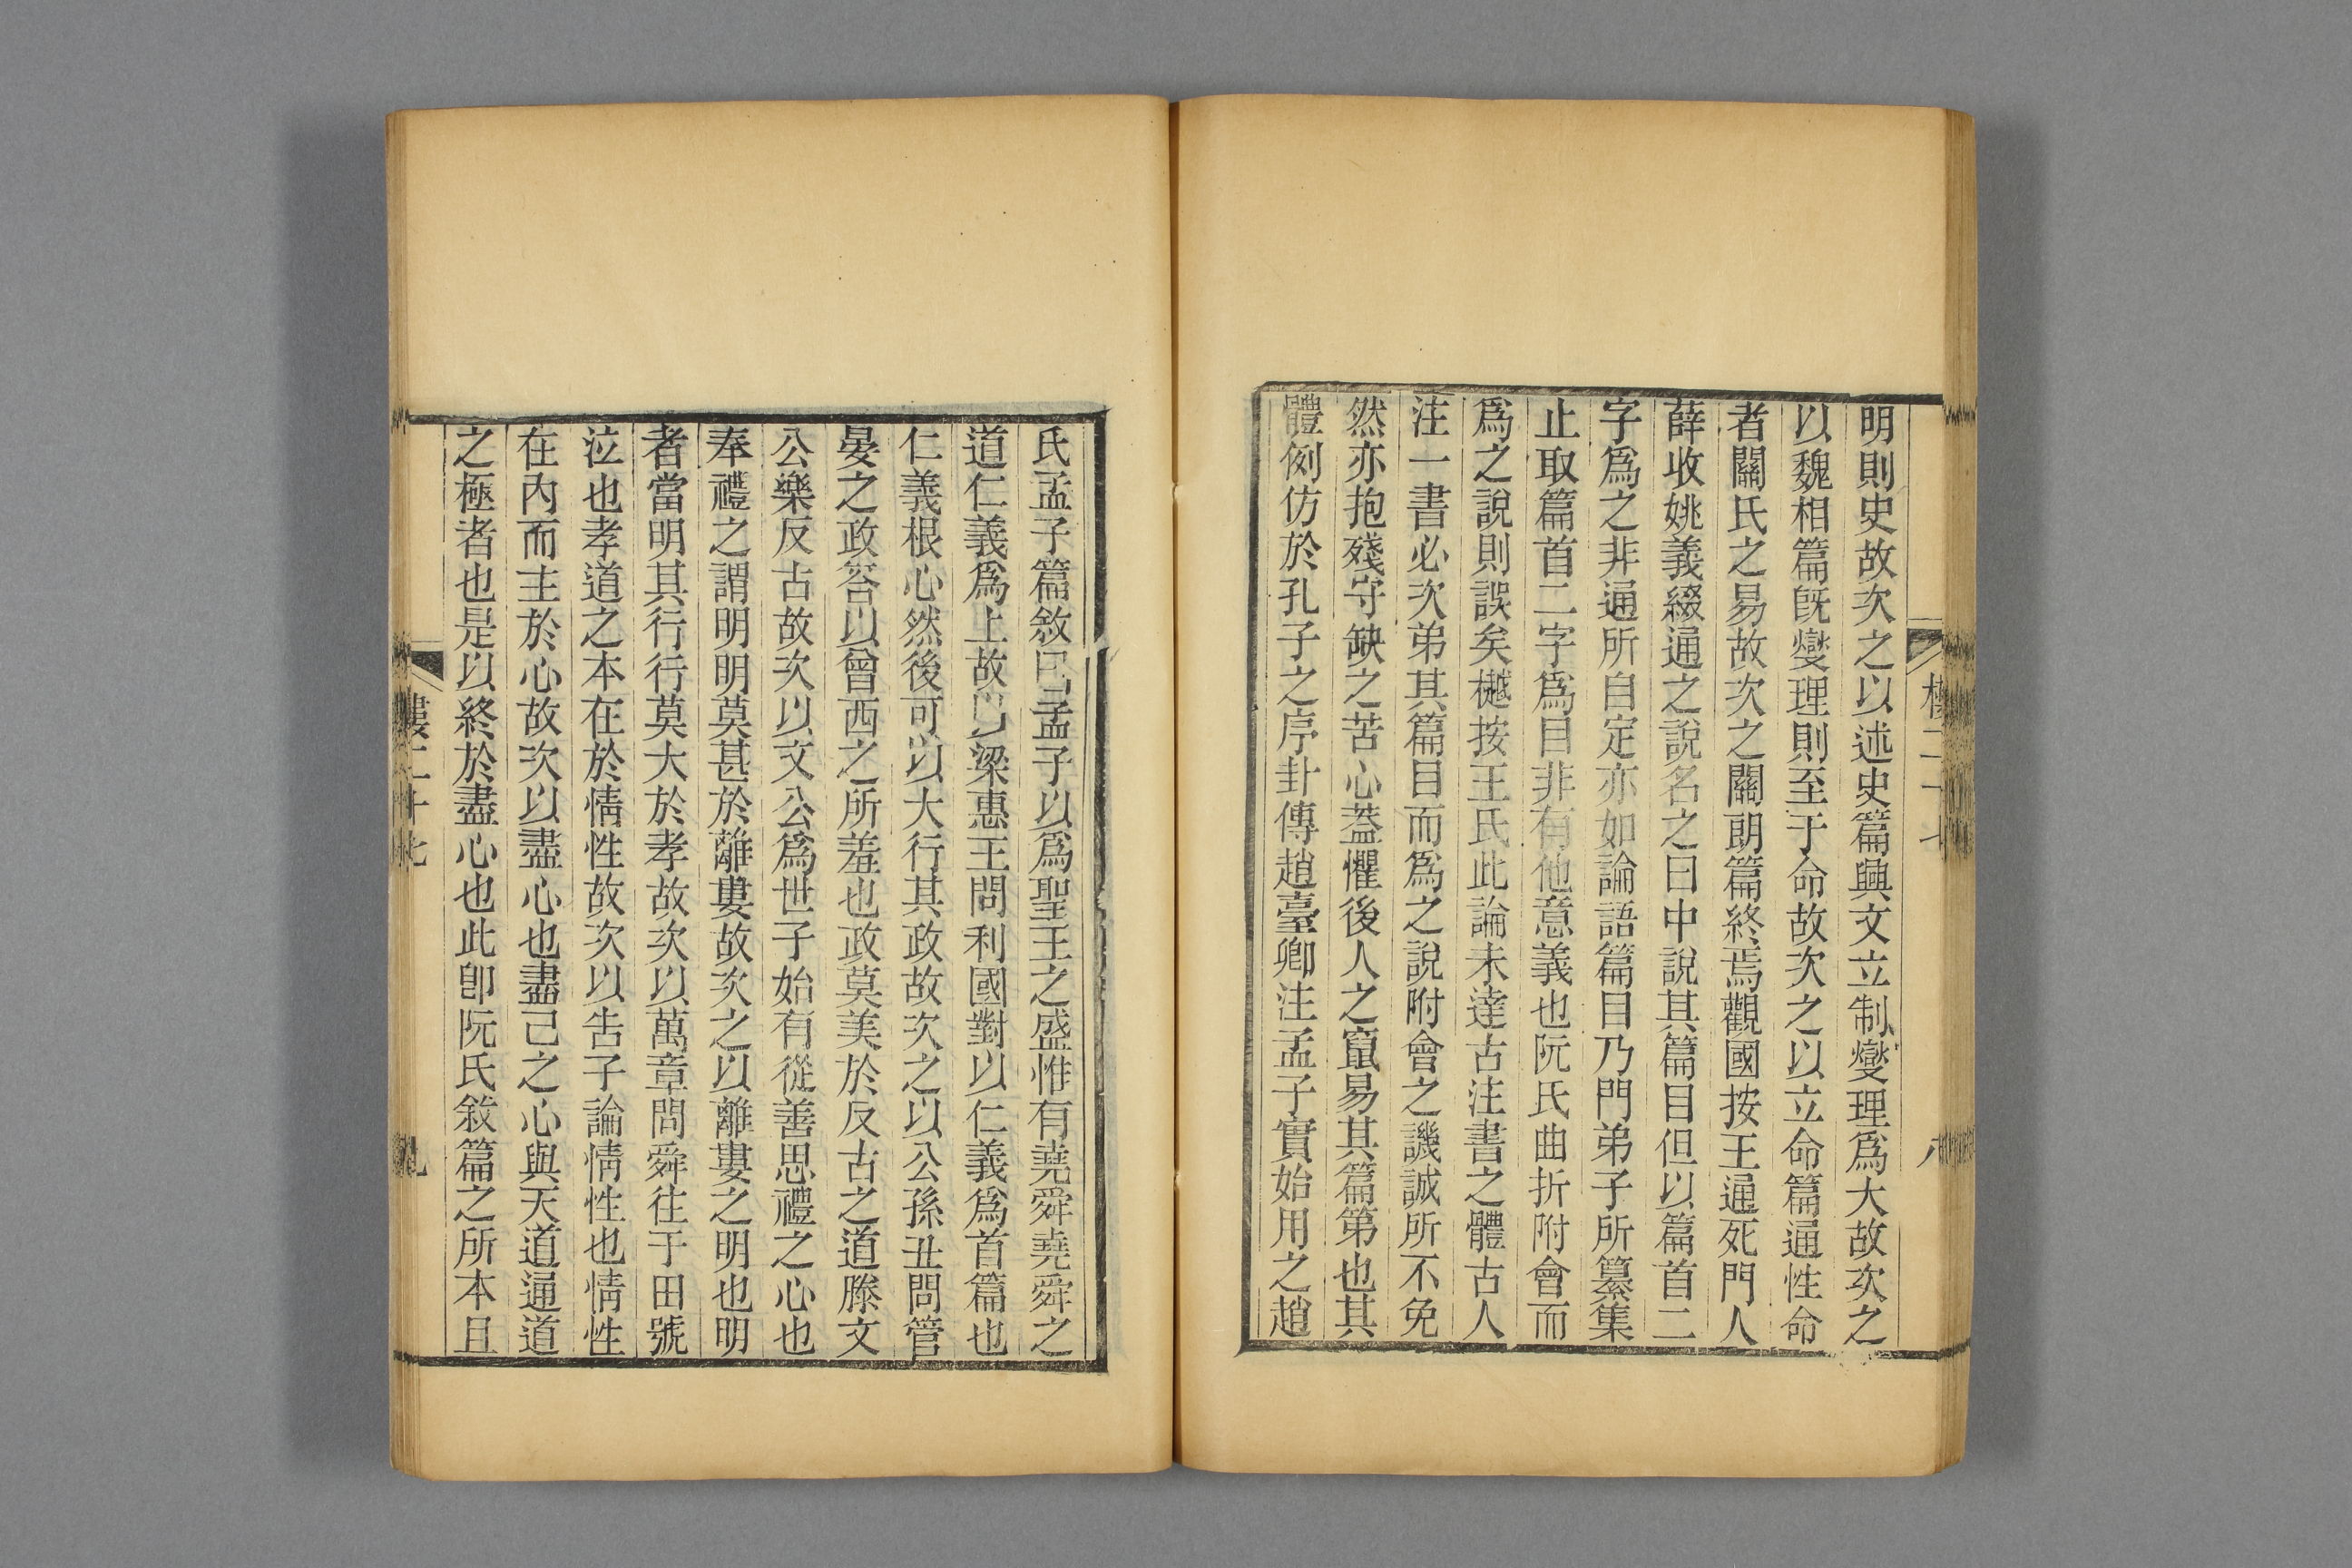 明則史故次之以述史篇興文立制燮理爲大故次之
以魏相篇旣燮理則至于命故次之以立命篇通性命
者關氏之易故次之關朗篇終焉觀國按王通死門人
薛收姚義綴通之說名之曰中說其篇目但以篇首二
字爲之非通所自定亦如論語篇目乃門弟子所纂集
止取篇首二字爲目非有他意義也阮氏曲折附會而
爲之說則誤矣樾按王氏此論未達古注書之體古人
注一書必次弟其篇目而爲之說附會之譏誠所不免
然亦抱殘守缺之苦心葢懼後人之竄易其篇第也其
體例仿於孔子之序卦傳趙臺卿注孟子實始用之趙
氏孟子篇敘曰孟子以爲聖王之盛惟有堯舜堯舜之
道仁義爲上故以梁惠王問利國對以仁義爲首篇也
仁義根心然後可以大行其政故次之以公孫丑問管
晏之政答以曾西之所羞也政莫美於反古之道滕文
公樂反古故次以文公爲世子始有從善思禮之心也
奉禮之謂明明莫甚於離婁故次之以離婁之明也明
者當明其行行莫大於孝故次以萬章問舜往于田號
泣也孝道之本在於情性故次以告子論情性也情性
在內而主於心故次以盡心也盡己之心與天道通道
之極者也是以終於盡心也此卽阮氏敘篇之所本且